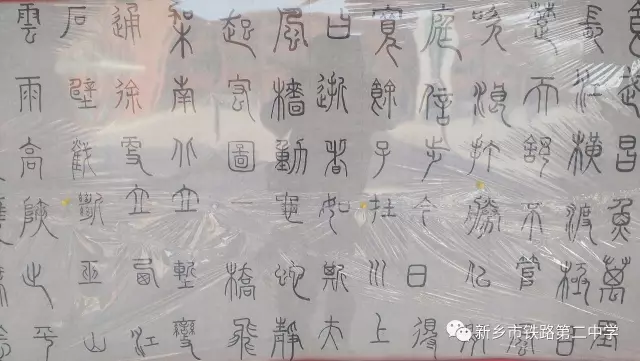 食武昌魚萬里
長江橫渡極
楚天舒不管風
吹浪打勝似
庭信步今日得
寬餘子在川上
曰逝者如斯夫
風檣動龜蛇靜
起宏圖一橋飛
架南北天塹變
通途更立西江
石壁截斷巫山
雲雨高峽出平
新乡市铁路第二中学